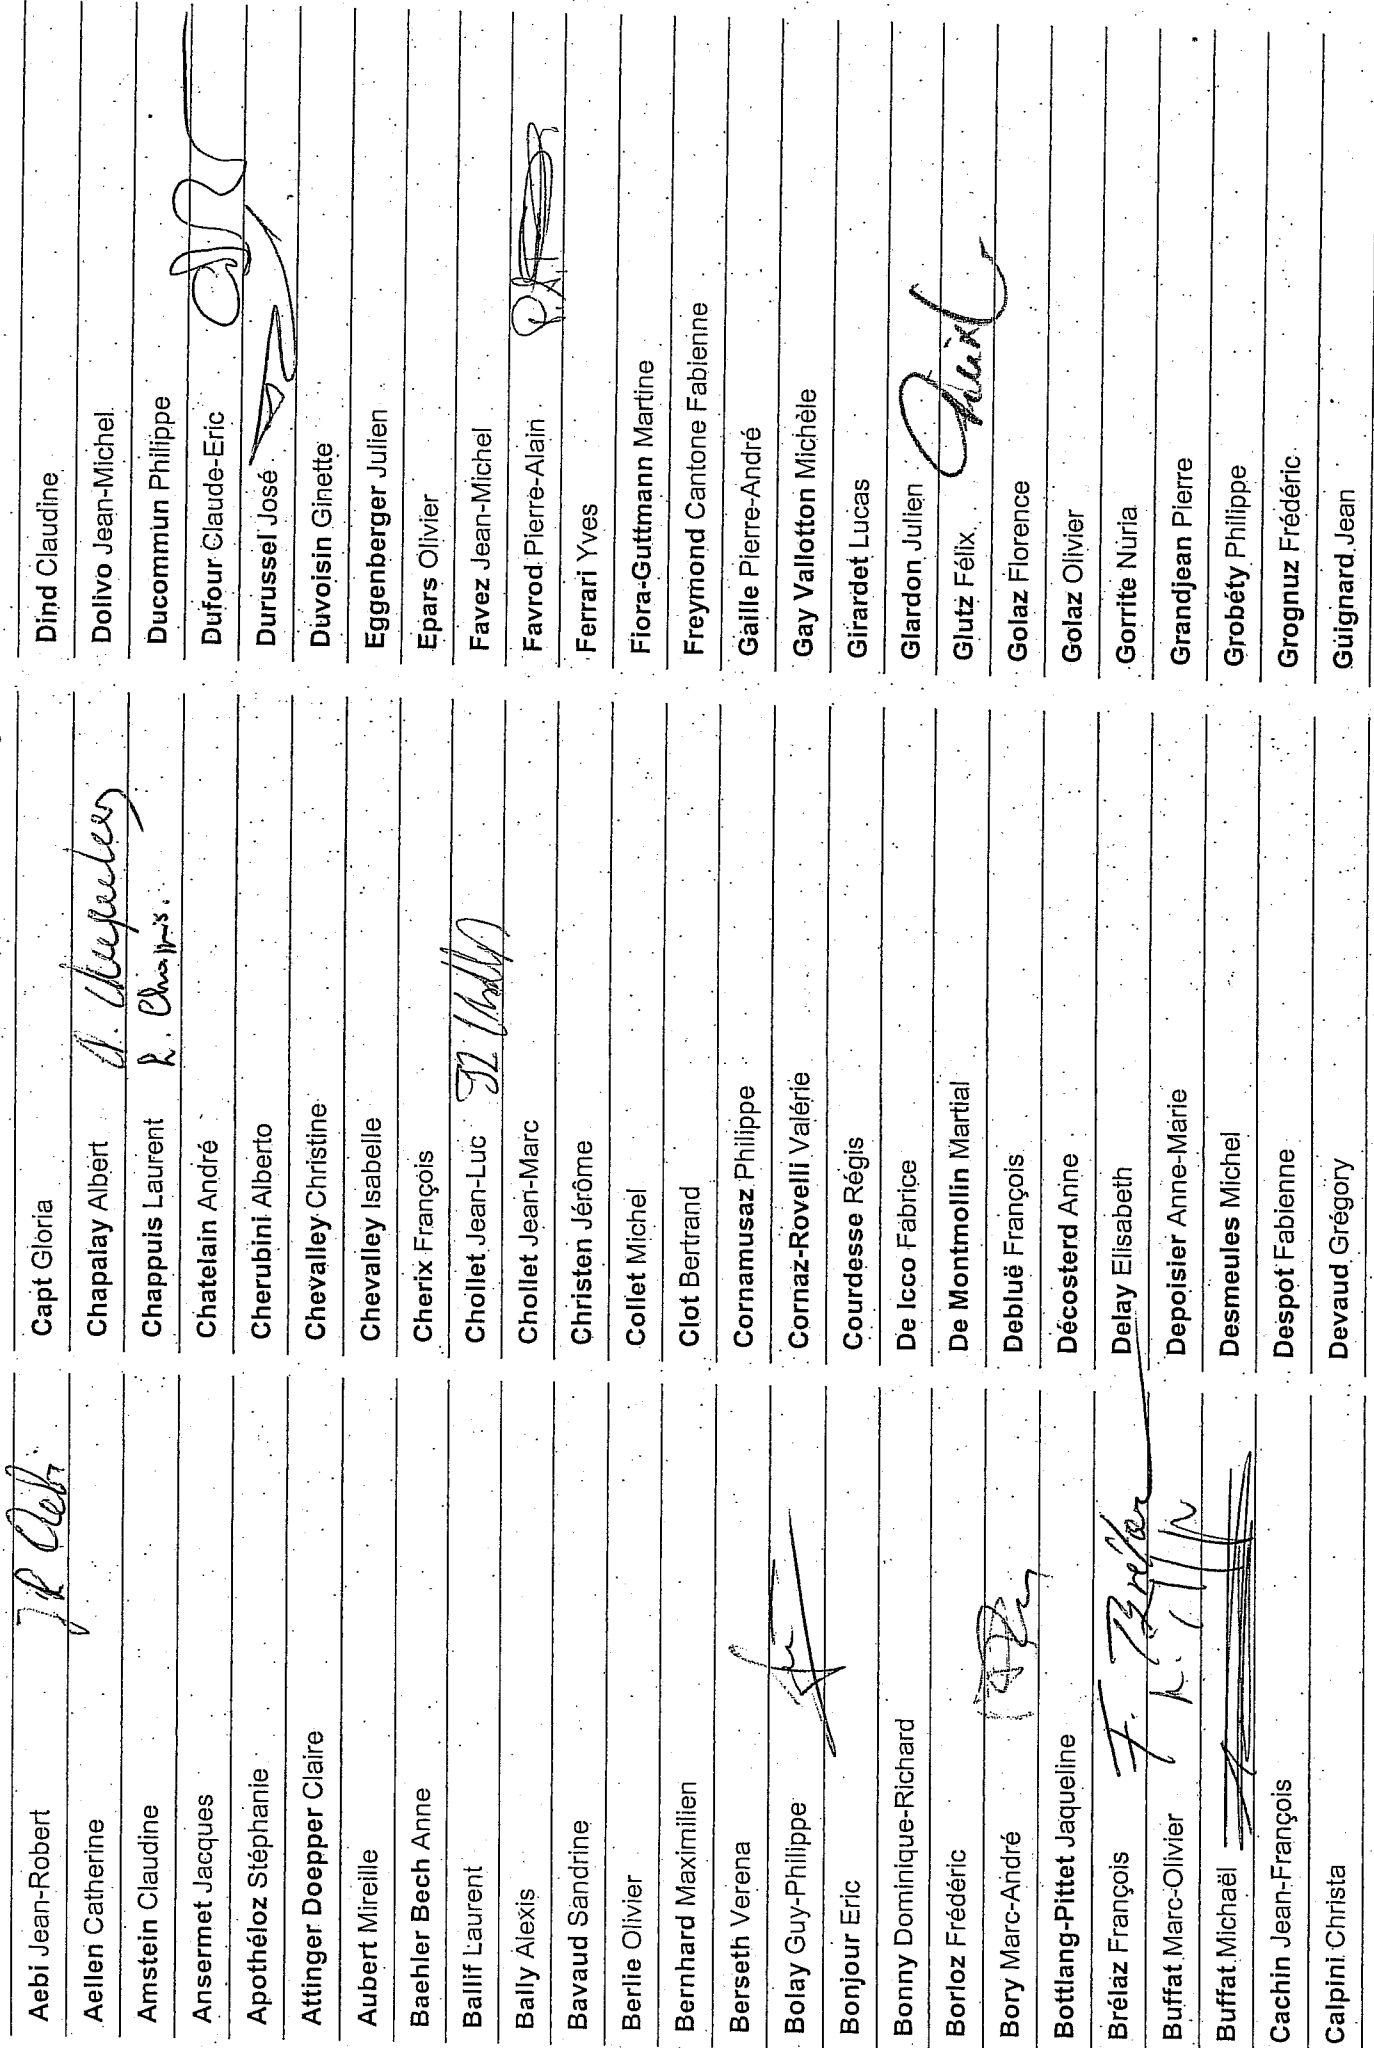 Aebi Jean-Robert JR Aebi
Aellen Catherine
Amstein Claudine
Ansermet Jacques
Apothéloz Stéphanie
Attinger Doepper Claire
Aubert Mireille
Baehler Bech Anne
Ballif Laurent
Bally Alexis
Bavaud Sandrine
Berlie Olivier
Bernhard Maximilien
Berseth Verena
Bolay Guy-Philippe
Bonjour Eric
Bonny Dominique-Richard
Borloz Frédéric
Bory Marc-André
Bottlang-Pittet Jaqueline
Brélaz François F. Brélaz
Buffat Marc-Olivier
Buffat Michaël
Cachin Jean-François
Calpini Christa
Capt Gloria
Chapalay Albert A. Chapalay
Chappuis Laurent L. Chappuis.
Chatelain André
Cherubini Alberto
Chevalley Christine
Chevalley Isabelle
Cherix François
Chollet Jean-Luc
Chollet Jean-Marc
Christen Jérôme
Collet Michel
Clot Bertrand
Cornamusaz Philippe
Cornaz-Rovelli Valérie
Courdesse Régis
De Icco Fabrice
De Montmollin Martial
Debluë François
Décosterd Anne
Delay Elisabeth
Depoisier Anne-Marie
Desmeules Michel
Despot Fabienne
Devaud Grégory
Dind Claudine
Dolivo Jean-Michel
Ducommun Philippe
Dufour Claude-Eric
Durussel José
Duvoisin Ginette
Eggenberger Julien
Epars Olivier
Favez Jean-Michel
Favrod Pierre-Alain
Ferrari Yves
Fiora-Guttmann Martine
Freymond Cantone Fabienne
Gaille Pierre-André
Gay Vallotton Michèle
Girardet Lucas
Glardon Julien
Glutz Félix
Golaz Florence
Golaz Olivier
Gorrite Nuria
Grandjean Pierre
Grobéty Philippe
Grognuz Frédéric
Guignard Jean